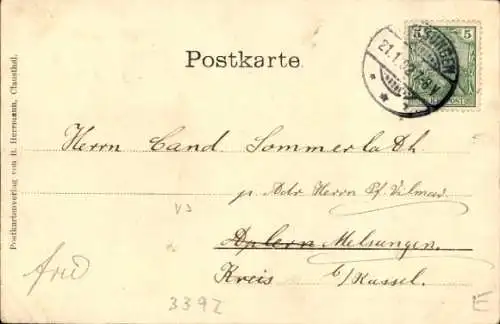 Postkarte
5 5
21.1.
Herrn Cand Sommerlath
p. Adr Herrn Pf. Vilmar
Aplern Melsungen.
Kreis b/Kassel.
fred
VS
3392
E
Postkartenverlag von H. Herrmann, Clausthal.